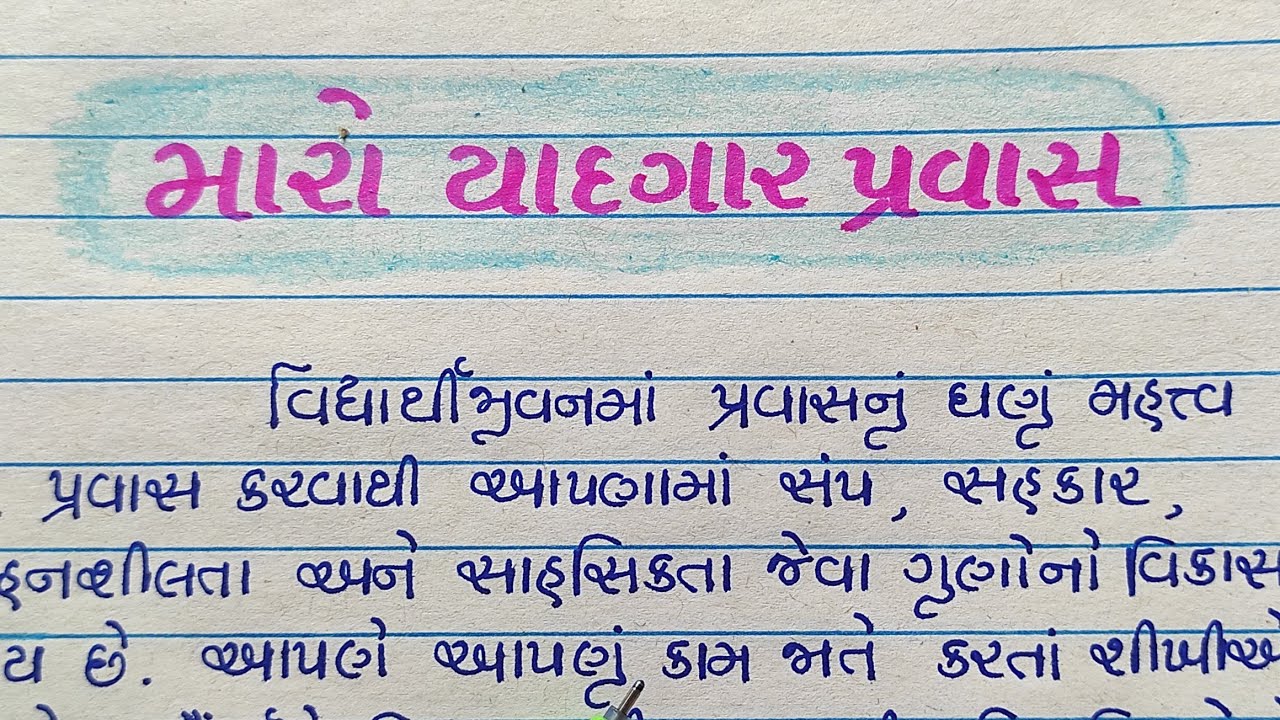 મારો યાદગાર પ્રવાસ
વિદ્યાર્થીજીવનમાં પ્રવાસનું ઘણું મહત્ત્વ
. પ્રવાસ કરવાથી આપણામાં સંપ, સહકાર,
હનશીલતા અને સાહસિકતા જેવા ગુણોનો વિકાસ
ય છે. આપણે આપણું કામ જાતે કરતાં શીખીએ